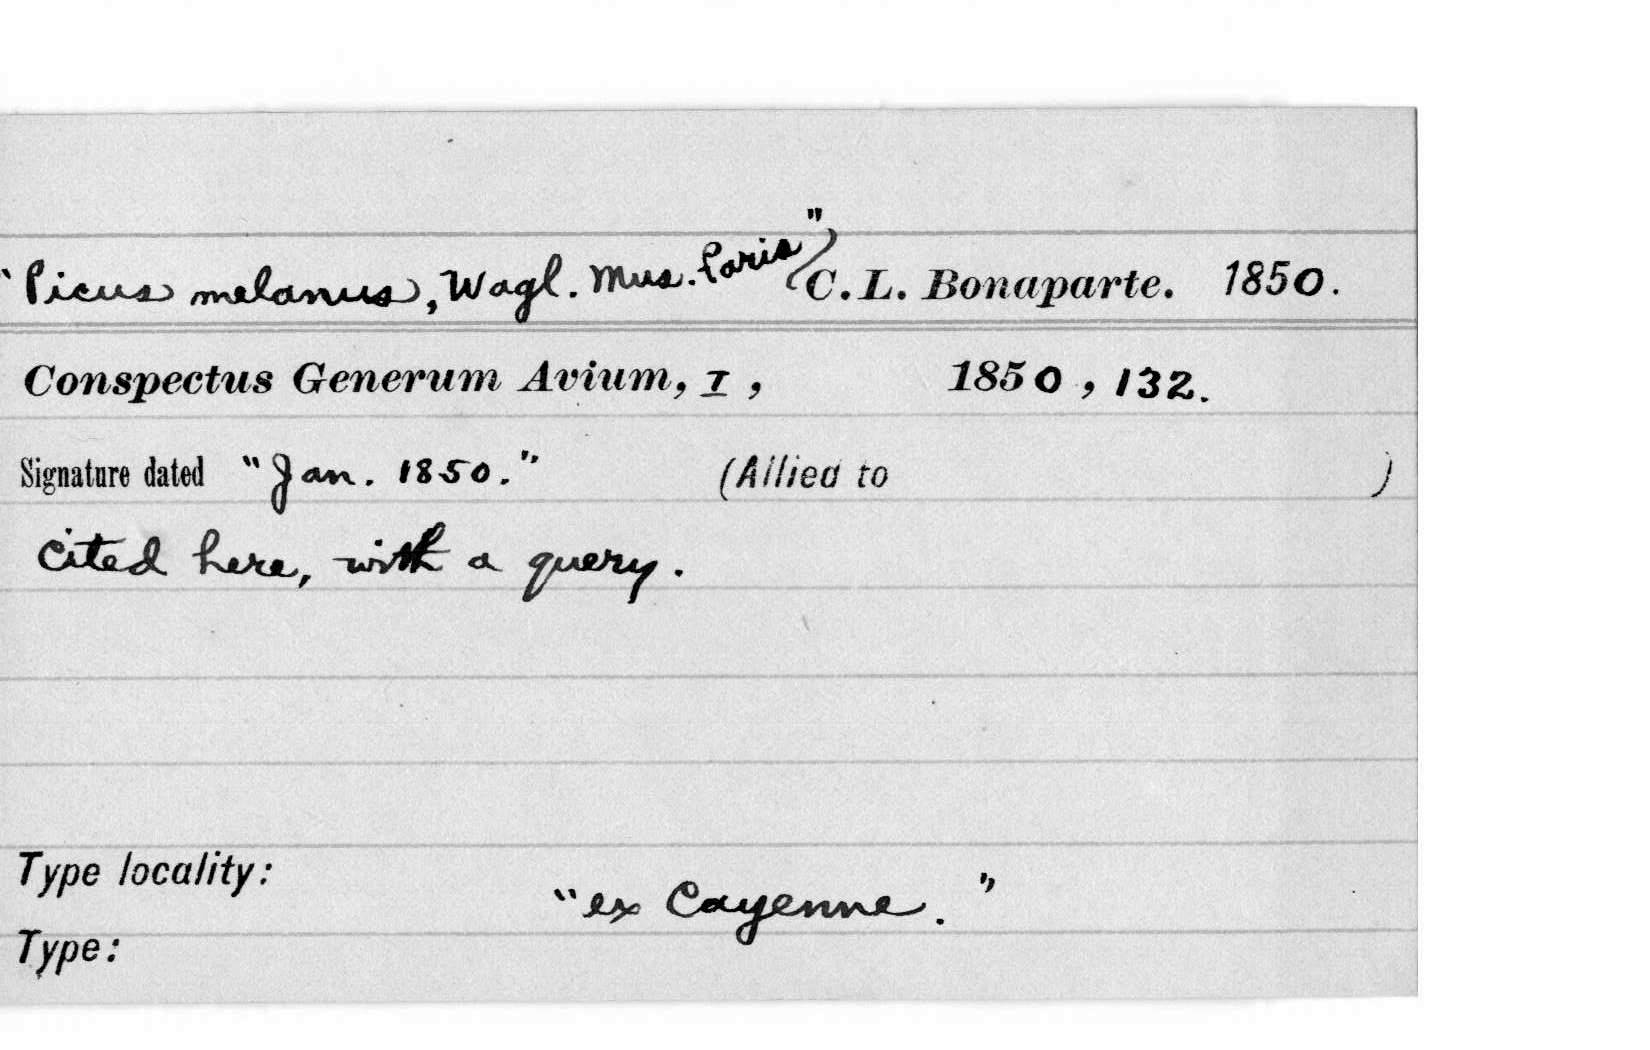 "Picus melanus, Wagl. Mus. Paris" C. L. Bonaparte. 1850.
Conspectus Generum Avium, I, 1850, 132.
Signature dated "Jan. 1850." (Allied to )
Cited here, with a query.
Type locality:
"ex Cayenne."
Type: